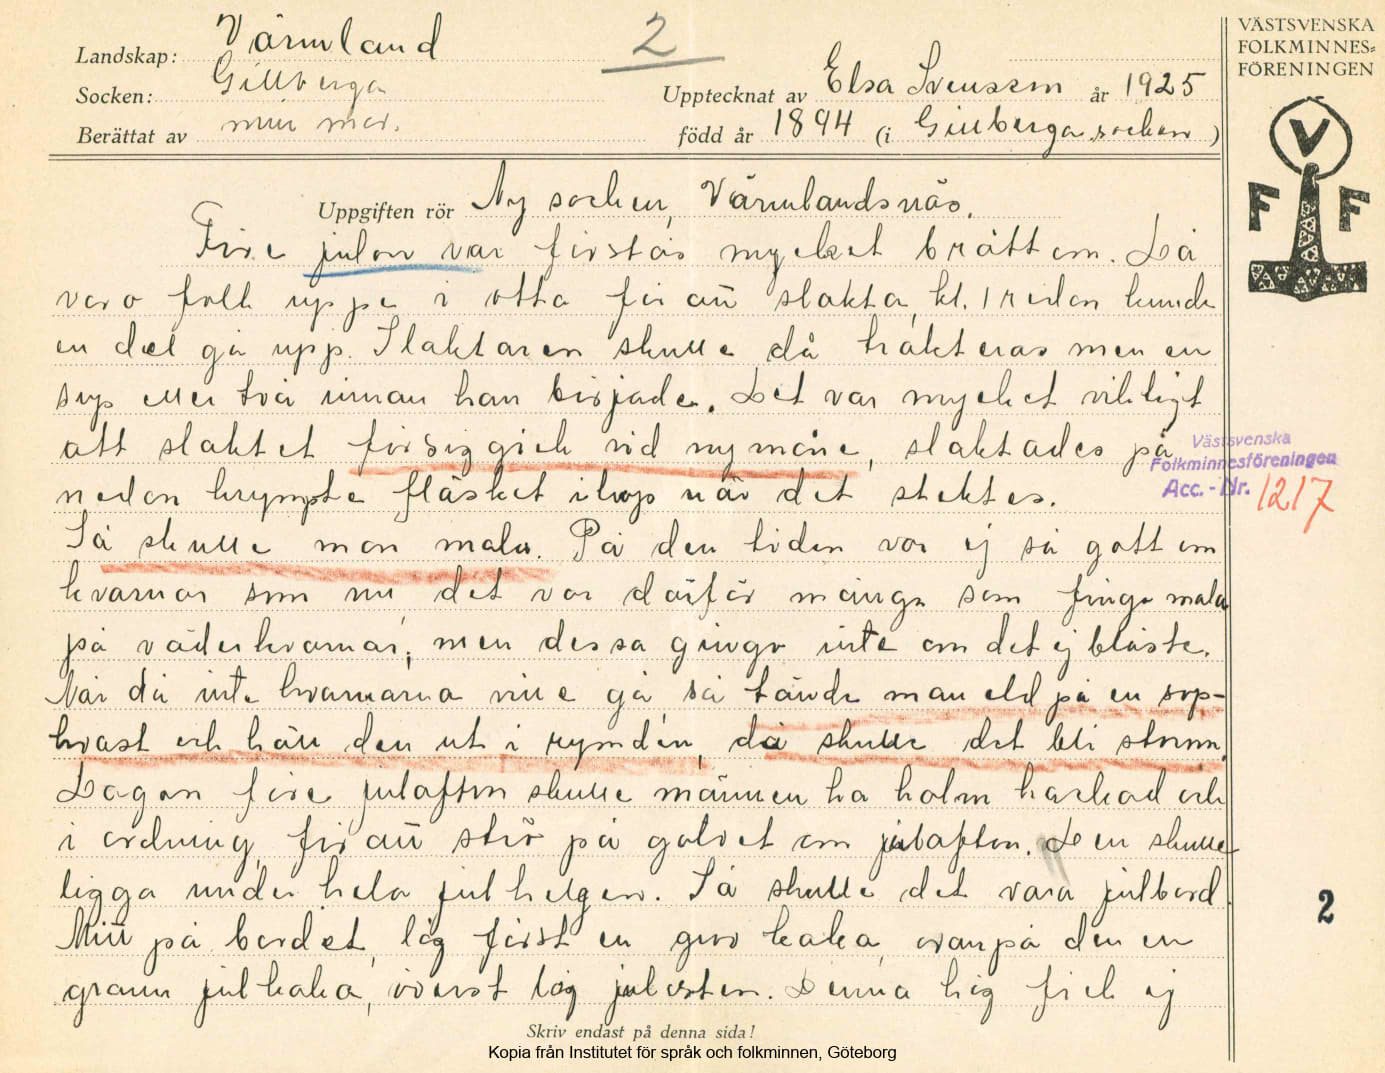 Landskap: Värmland
2
Socken: Gillberga
Upptecknat av Elsa Svensson år 1925
Berättat av min mor.
född år 1894 (i Gillberga socken)
VÄSTSVENSKA
FOLKMINNES=
FÖRENINGEN
V
F F
Uppgiften rör Ny socken, Värmlandsnäs.
Före julen var förstås mycket bråttom. Då
voro folk uppe i otta för att slakta, kl. 1 redan kunde
en del gå upp. Slaktaren skulle då trakteras men en
sup eller två innan han började. Det var mycket viktigt
att slaktet försiggick vid nymåne, slaktades på
nedan krympte fläsket ihop när det stektes.
Så skulle man mala. På den tiden var ej så gott om
kvarnar som nu, det var därför många som fingo mala
på väderkvarnar, men dessa gingo inte om det ej blåste.
När då inte kvarnarna ville gå, så tände man eld på en sop-
kvast och höll den ut i rymden, då skulle det bli storm.
Dagen före julafton skulle männen ha halm hackad och
i ordning, för att strö på golvet om julafton. Den skulle
ligga under hela julhelgen. Så skulle det vara julbord.
Mitt på bordet, låg först en grov kaka, ovanpå den en
grann julkaka, överst låg julosten. Denna hög fick ej
Västsvenska
Folkminnesföreningen
Acc. - Nr. 1217
2
Skriv endast på denna sida!
Kopia från Institutet för språk och folkminnen, Göteborg